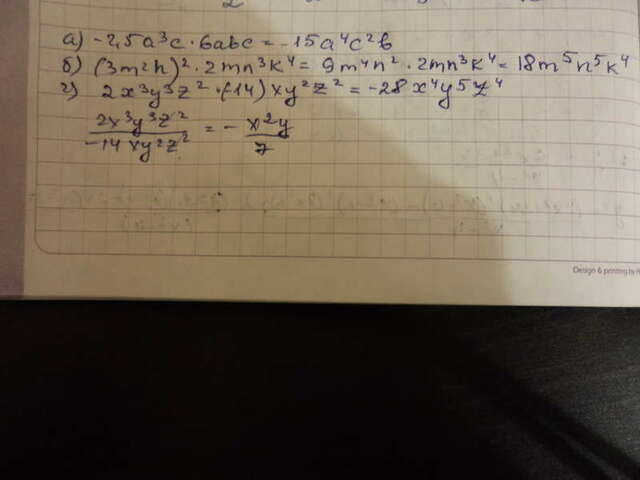 а) -2,5a³c · 6abc = -15a⁴c²b
б) (3m²n)² · 2mn³k⁴ = 9m⁴n² · 2mn³k⁴ = 18m⁵n⁵k⁴
г) 2x³y³z² · (-14)xy²z² = -28x⁴y⁵z⁴
2x³y³z² / -14xy²z² = - x²y / 7
Design & printing by